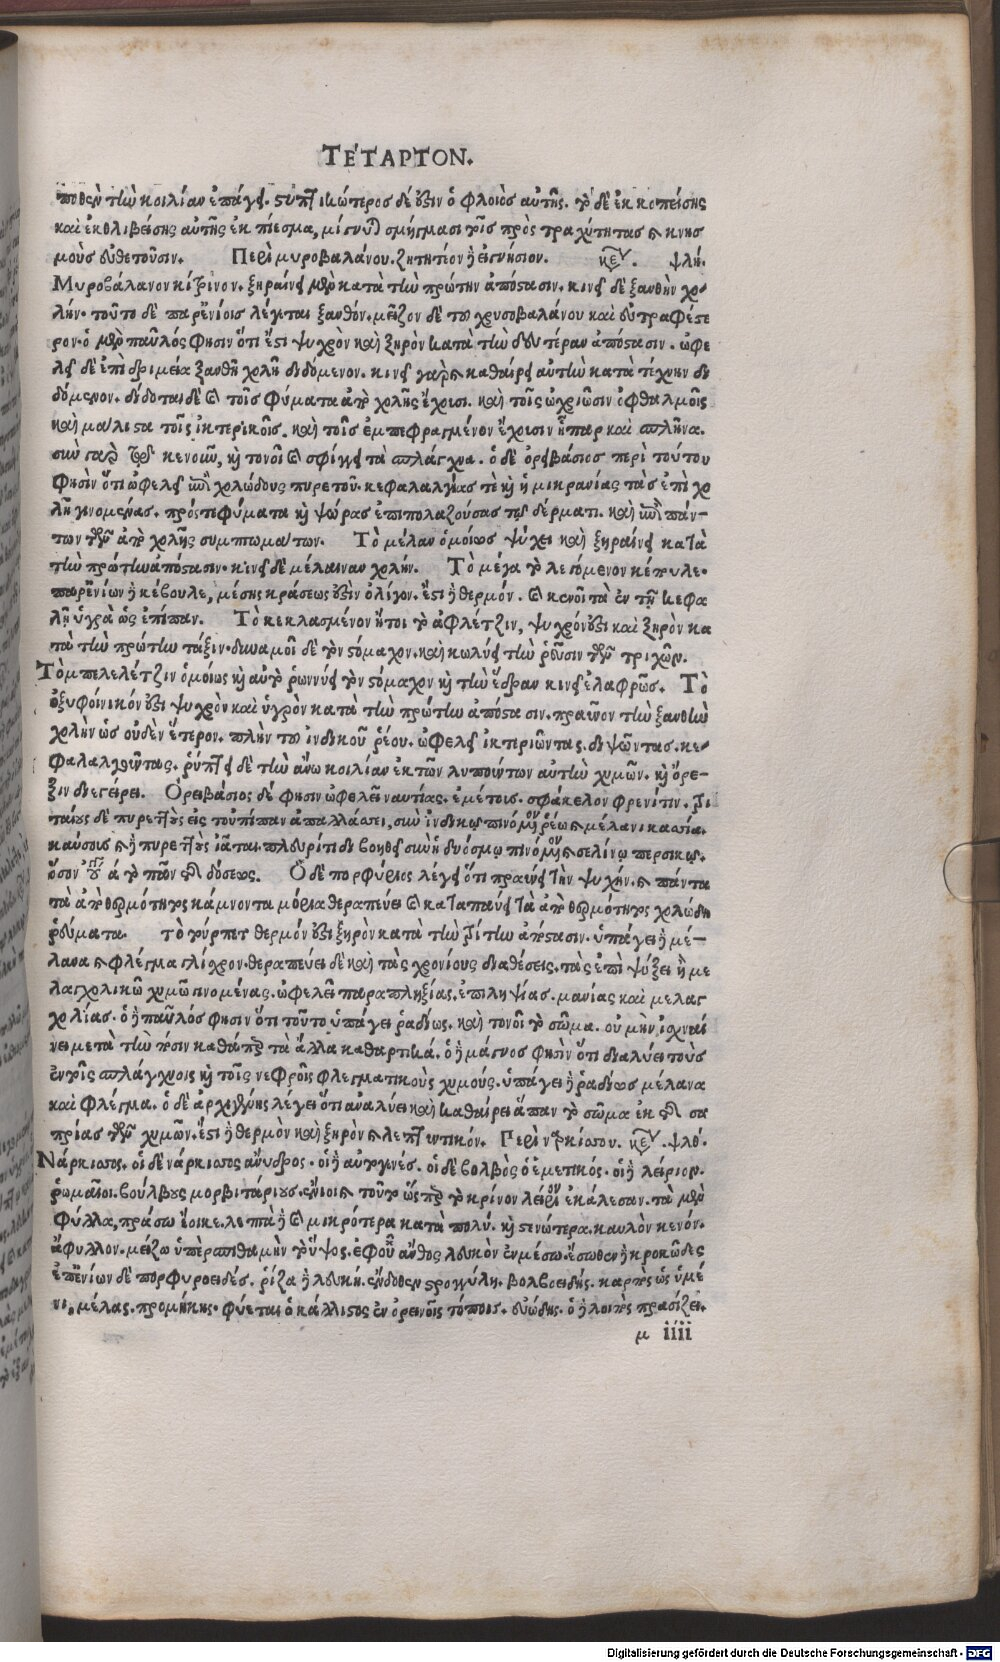 ΤΕ΄ΤΑΡΤΟΝ.
ποθεν τὴν κοιλίαν ἐπάγει. στυπτικώτερος δέ ὅστιν ὁ φλοιὸς αὐτῆς. τὸ δὲ ἐκ κοπείσης
καὶ ἐκθλιβείσης αὐτῆς ἐκπίεσμα, μίγνυται σμήγμασι τοῖς πρὸς τραχύτητας καὶ κνησ
μοὺς εὐθετοῦσιν. Περὶ μυροβαλάνου. ζητητέον ἢ εἰ γνήσιον. κεφ. ψλή.
Μυροβάλανον κίτρινον. ξηραίνει μὲν κατὰ τὴν πρώτην ἀπόστασιν. κινεῖ δὲ ξανθὴν χο
λήν. τοῦτο δὲ παρ᾽ ἐνίοις λέγεται ξανθόν. μεῖζον δὲ τοῦ χρυσοβαλάνου καὶ εὐτραφέστε
ρον. ὁ μὲν παῦλός φησιν ὅτι ἔστι ψυχρὸν καὶ ξηρὸν κατὰ τὴν δευτέραν ἀπόστασιν. ὠφε
λεῖ δὲ ἐπὶ δριμεία ξανθῇ χολῇ διδόμενον. κινεῖ γὰρ καὶ καθαίρει αὐτὴν κατὰ τέχνην δι
δόμενον. δίδοται δὲ καὶ τοῖς φύματα ἀπὸ χολῆς ἔχουσι. καὶ τοῖς ὠχριῶσιν ὀφθαλμοῖς
καὶ μάλιστα τοῖς ἰκτερικοῖς. καὶ τοῖς ἐμπεφραγμένον ἔχουσιν ἧπαρ καὶ σπλῆνα.
σὺν κενοῦν, καὶ τονοῖ καὶ σφίγγει τὰ σπλάγχνα. ὁ δὲ ὀρειβάσιος περὶ τούτου
φησὶν ὅτι ὠφελεῖ ἐπὶ χολώδους πυρετοῦ. κεφαλαλγίας τὲ καὶ ἡμικρανίας τὰς ἐπὶ χο
λῇ γινομένας. πρός τε φύματα καὶ ψώρας ἐπιπολαζούσας τῷ δέρματι. καὶ ἐπὶ πάν-
των τῶν ἀπὸ χολῆς συμπτωμάτων. Τὸ μέλαν ὁμοίως ψύχει καὶ ξηραίνει κατὰ
τὴν πρώτην ἀπόστασιν. κινεῖ δὲ μέλαιναν χολήν. Τὸ μέγα τὸ λεγόμενον κέπουλε.
παρ᾽ ἐνίων ἢ κέβουλε, μέσης κράσεως ὅστιν ὀλίγον. ἔστι ἢ θερμόν. καὶ κενοῖ τὰ ἐν τῇ κεφα
λῇ ὑγρὰ ὡς ἐπίπαν. Τὸ κεκλασμένον ἤτοι τὸ ἀφλέτζιν, ψυχρόν ὅστι καὶ ξηρὸν κα
τὰ τὴν πρώτην τάξιν. δυναμοῖ δὲ τὸν στόμαχον. καὶ κωλύει τὴν ῥεῦσιν τῶν τριχῶν.
Τὸ μπελελέτζιν ὁμοίως καὶ αὐτὸ ῥωννύει τὸν στόμαχον καὶ τὴν ἕδραν κινεῖ ἐλαφρῶς. Τὸ
ὀξυφοίνικόν ὅστι ψυχρὸν καὶ ὑγρὸν κατὰ τὴν πρώτην ἀπόστασιν. πραῧνον τὴν ξανθὴν
χολὴν ὡς οὐδὲν ἕτερον. πλὴν τοῦ ἰνδικοῦ ῥέου. ὠφελεῖ ἰκτεριῶντας. διψῶντας. κε
φαλαλγοῦντας. ῥύπτει δὲ τὴν ἄνω κοιλίαν ἐκ τῶν λυπούντων αὐτὴν χυμῶν. καὶ ὄρε-
ξιν διεγείρει. Ὀρειβάσιος δέ φησιν ὠφελεῖν ναυτίας. ἐμέτους. σφάκελον φρενῖτιν. τρι
ταίους δὲ πυρετοὺς εἰς τοὐπίπαν ἀπαλλάσσει, σὺν ἰνδικῷ πινόμενον ῥέῳ καὶ μέλανι κασσία.
καύσους καὶ ἢ πυρετοὺς ἰᾶται. πλευρίτιδι βοηθεῖ σὺν ἡδυόσμῳ πινόμενον καὶ σελίνῳ περσικῷ.
ὅσον α τὸ πᾶν τῆς δόσεως. Ὁ δὲ πορφύριος λέγει ὅτι πραΰνει τὴν ψυχήν. καὶ πάντα
τὰ ἀπὸ θερμότητος κάμνοντα μόρια θεραπεύει καὶ καταπαύει τὰ ἀπὸ θερμότητος χολώδη
ῥεύματα. τὸ τούρπετ θερμόν ὅστι ξηρὸν κατὰ τὴν τρίτην ἀπόστασιν. ὑπάγει ἢ μέ-
λανα καὶ φλέγμα γλίσχρον. θεραπεύει δὲ καὶ τὰς χρονίους διαθέσεις. τὰς ἐπὶ ψύξει ἢ με
λαγχολικῷ χυμῷ γινομένας. ὠφελεῖ παραπληξίας. ἐπιληψίας. μανίας καὶ μελαγ
χολίας. ὁ ἢ παῦλός φησιν ὅτι τοῦτο ὑπάγει ῥαδίως. καὶ τονοῖ τὸ σῶμα. οὐ μὴν ἰσχναί
νει μετὰ τὴν πόσιν καθάπερ τὰ ἄλλα καθαρτικά. ὁ ἢ μάγνος φησὶν ὅτι διαλύει τοὺς
ἐν τοῖς σπλάγχνοις καὶ τοῖς νεφροῖς φλεγματικοὺς χυμούς. ὑπάγει ἢ ῥαδίως μέλανα
καὶ φλέγμα. ὁ δὲ ἀρχιγένης λέγει ὅτι ἀναλύει καὶ καθαίρει ἅπαν τὸ σῶμα ἐκ τῆς σα
πρίας τῶν χυμῶν. ἔστι ἢ θερμὸν καὶ ξηρὸν καὶ λεπτυντικόν. Περὶ ναρκίσσου. κεφ. ψλθ.
Νάρκισσος. οἱ δὲ νάρκισσος ἄνυδρος. οἱ ἢ αὐτογενές. οἱ δὲ βολβὸς ὁ ἐμετικός. οἱ ἢ λείριον.
ῥωμαῖοι. βούλβους μορβιτάριους. ἔνιοι καὶ τοῦτο ὥσπερ τὸ κρίνον λείριον ἐκάλεσαν. τὰ μὲν
φύλλα, πράσῳ ἔοικε. λεπτὰ ἢ καὶ μικρότερα κατὰ πολύ. καὶ στενώτερα. καυλὸν κενόν.
ἄφυλλον. μείζω ὑπὲρ σπιθαμὴν τὸ ὕψος. ἐφ᾽ οὗ ἄνθος λευκὸν ἐν μέσῳ. ἔσωθεν ἢ κροκῶδες
ἐπ᾽ ἐνίων δὲ πορφυροειδές. ῥίζα ἢ λευκή. ἔνδοθεν στρογγύλη. βολβοειδής. καρπὸς ὡς ὑμέ
νι, μέλας. προμήκης. φύεται ὁ κάλλιστος ἐν ὀρεινοῖς τόποις. εὐώδης. ὁ ἢ λοιπὸς πρασίζει.
μ iiii
Digitalisierung gefördert durch die Deutsche Forschungsgemeinschaft - DFG